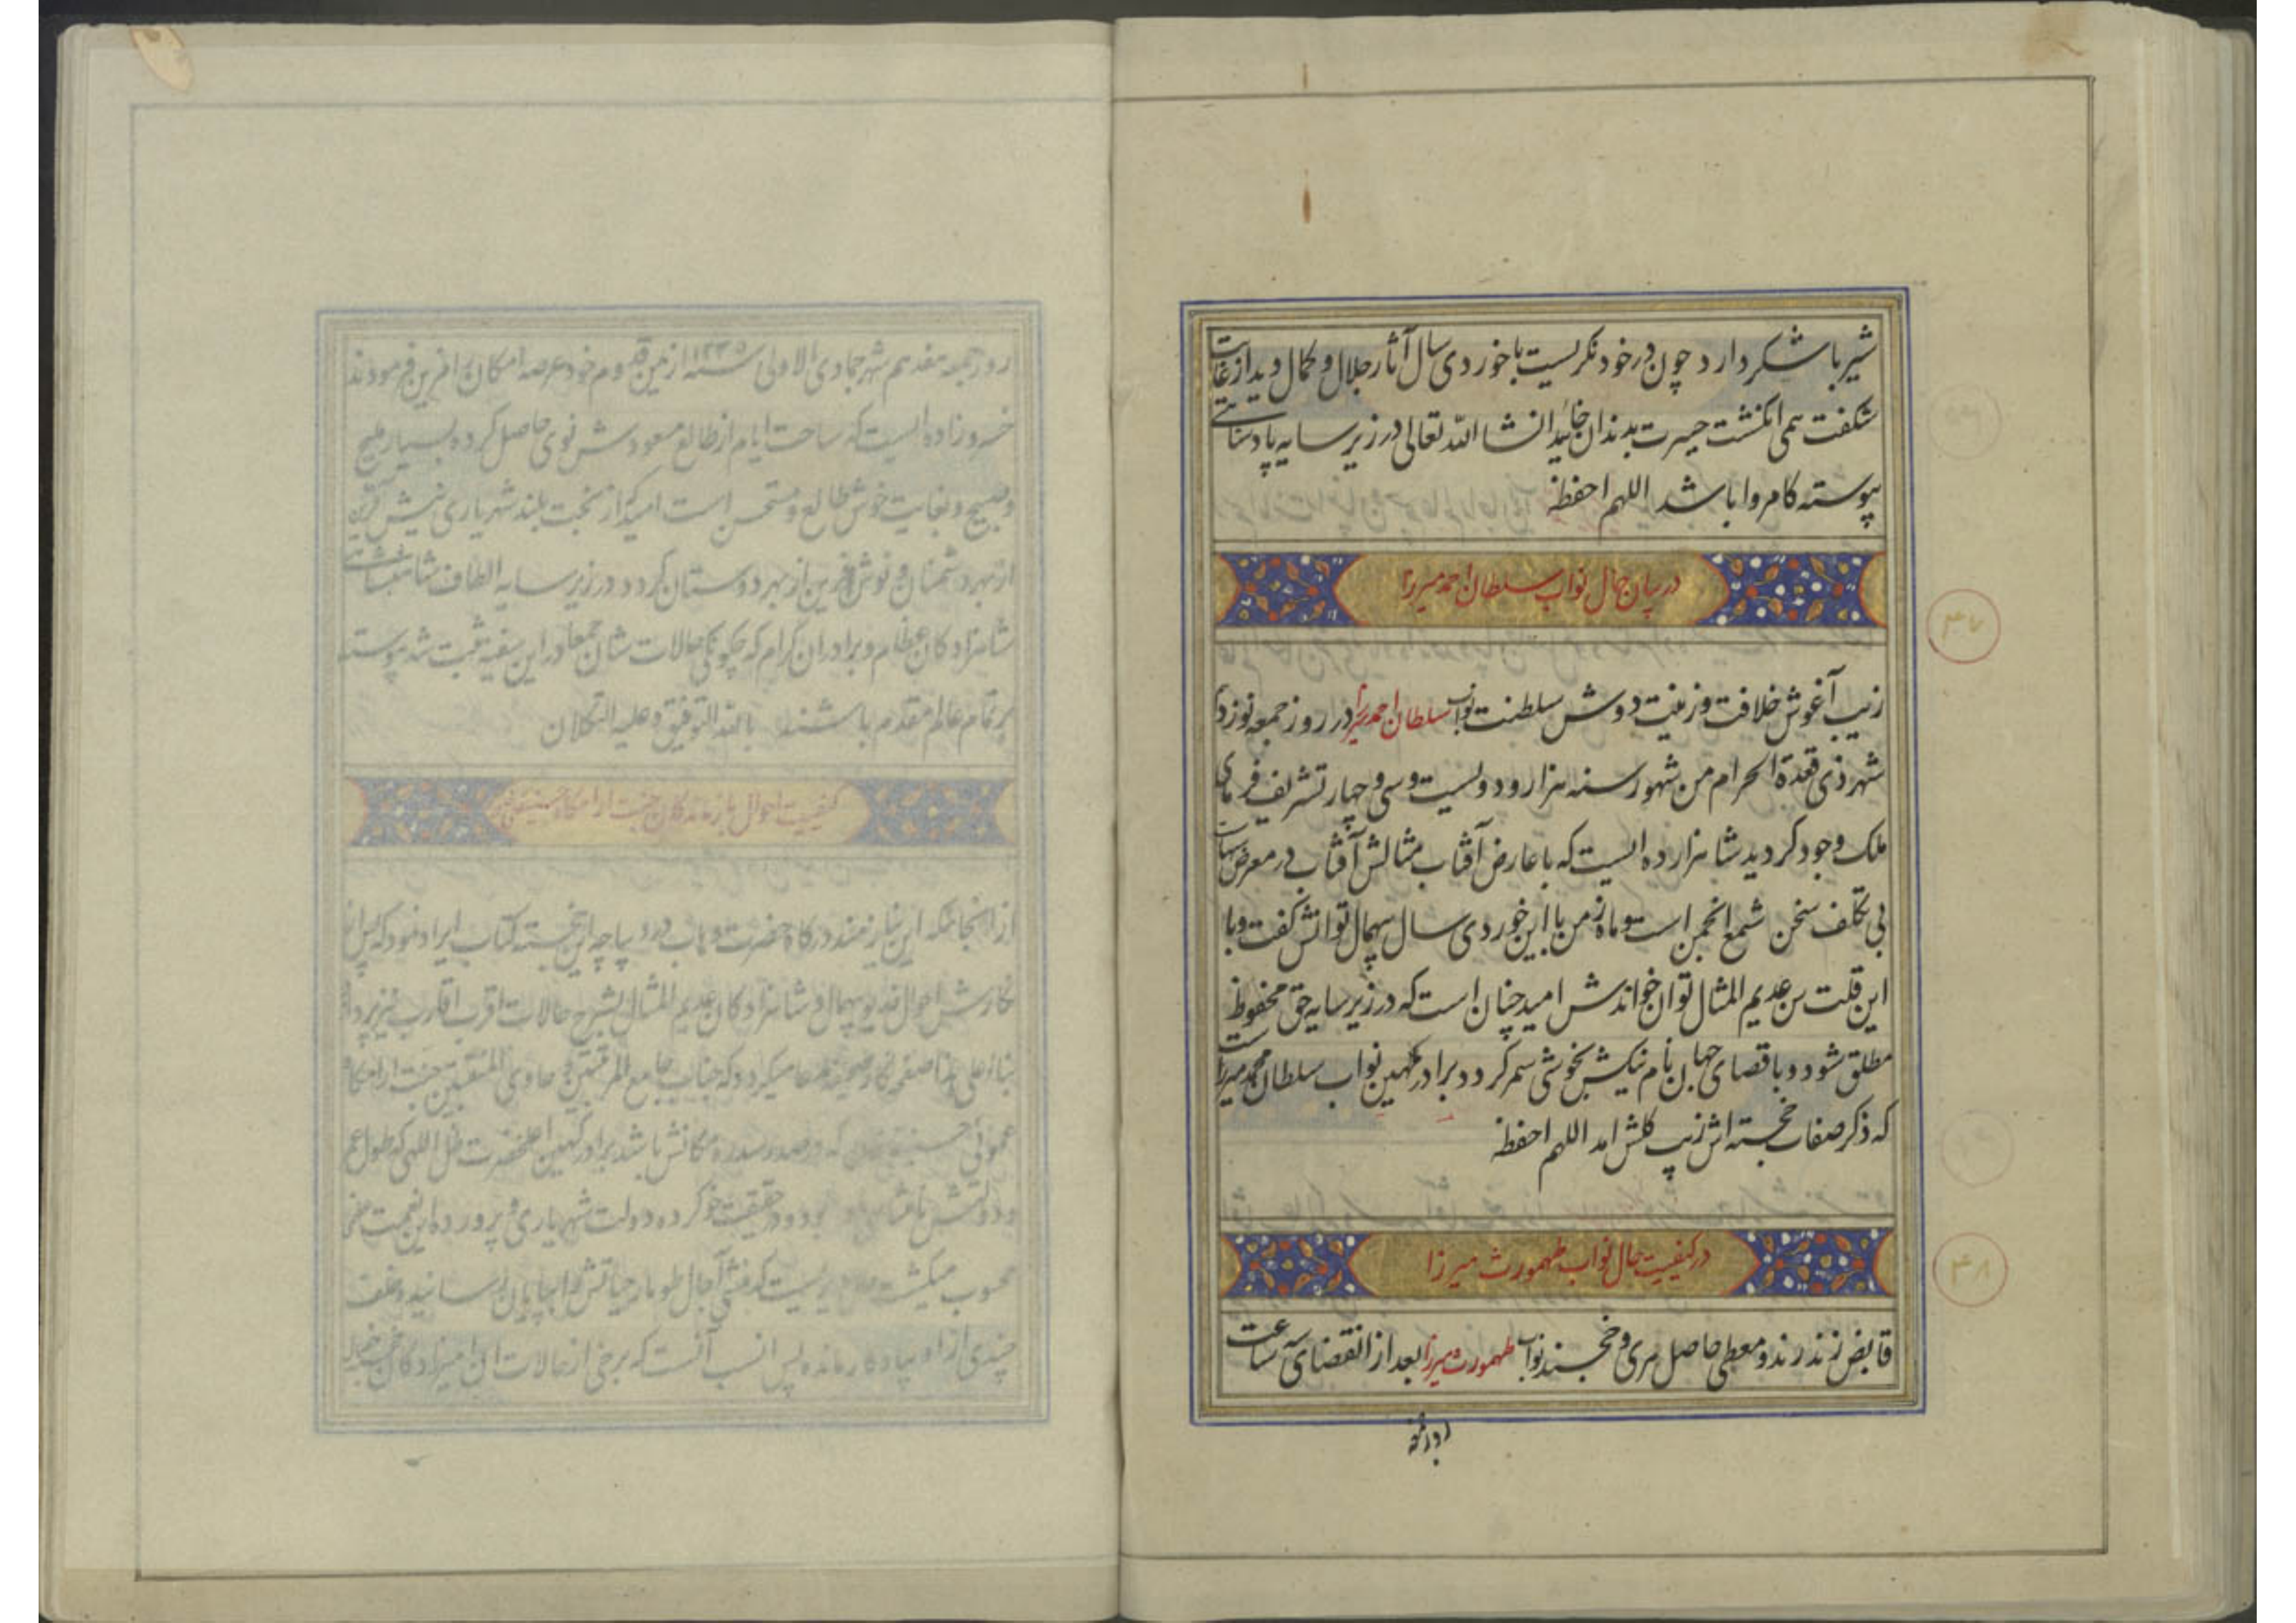 شیر باشکر دارد چون در خود نگریست با خوردی سال آثار جلال و کمال دید از غایت
شکفت همی انگشت حیرت بدندان خائید انشاالله تعالی در زیر سایه پادشاهی
پیوسته کامروا باشد اللهم احفظه
در بیان حال نواب سلطان احمد میرزا
۴۷
زیب آغوش خلافت و زینت دوش سلطنت نواب سلطان احمد میرزا در روز جمعه نوزدهم
شهر ذی قعدة الحرام من شهور سنه هزار و دویست و سی و چهار تشریف فرمای
ملک وجود کردید شاهزاده ایست که با عارض آفتاب مثالش آفتاب در معرض
بی تکلف سخن شمع انجمن است و ماه زمن با این خوردی سال بیهمال توانش کفت و با
این قلت سن عدیم المثال توان خواندش امید چنان است که در زیر سایه حق محفوظ
مطلق شود و باقصای جهان نام نیکش بخوشی سمر کردد برادر کهین نواب سلطان محمد میرزا
که ذکر صفات خجسته اش زیب کلش امد اللهم احفظه
در کیفیت حال نواب طهمورث میرزا
۴۸
قابض زند رند و معطی حاصل سری و خجند نواب طهمورث میرزا بعد از انقضای سه ساعت
از روز جمعه هفدهم شهر جمادی الاولی سنه ۱۲۳۵ از یمن قدوم خود عرصه امکان افرین فرمودند
خسرو زاده ایست که ساحت ایام از طالع مسعودش نوی حاصل کرده بسیار ملیح
و صبیح و بغایت خوش طالع و مستحسن است امید که از بخت بلند شهریاری نیش آفرین
از بهر دشمنان و نوش آفرین از بهر دوستان کردد در زیر سایه الطاف شاهنشاهی
شاهزادکان عظام و برادران کرام که چکونکی حالات شان جمعا در این سفینه ثبت شد پیوسته
بر تمام عالم مقدم باشند بالله التوفیق و علیه التکلان
کیفیت احوال بازماندکان جنت ارامکاه حسینقلی
از انجا که این نیازمند درکاه حضرت وهاب در دیباچه این خجسته کتاب ایراد نمود که پس از
نکارش احوال خدیو بیهمال و شاهزادکان عدیم المثال بشرح حالات اقرب اقارب نیز پردازد
بناء علی هذا صفحه نکار صحیفه مدعا میکردد که جناب جامع المرتبتین و حاوی المنقبتین جنت ارامکاه
عموئی حسینقلی خان که در صدر سدره مکانش باشد برادر کهین اعلیحضرت ظل اللهی که طول عمر
و دولتش باد بود و در حقیقت خو کرده دولت شهریاری و پرورده این نعمت
محسوب میکشت که منشی آجال طومار حیاتش را بپایان رسانیده و خلف
چندی از او بیادکار مانده پس انسب آنست که برخی از حالات ان امیرزادکان